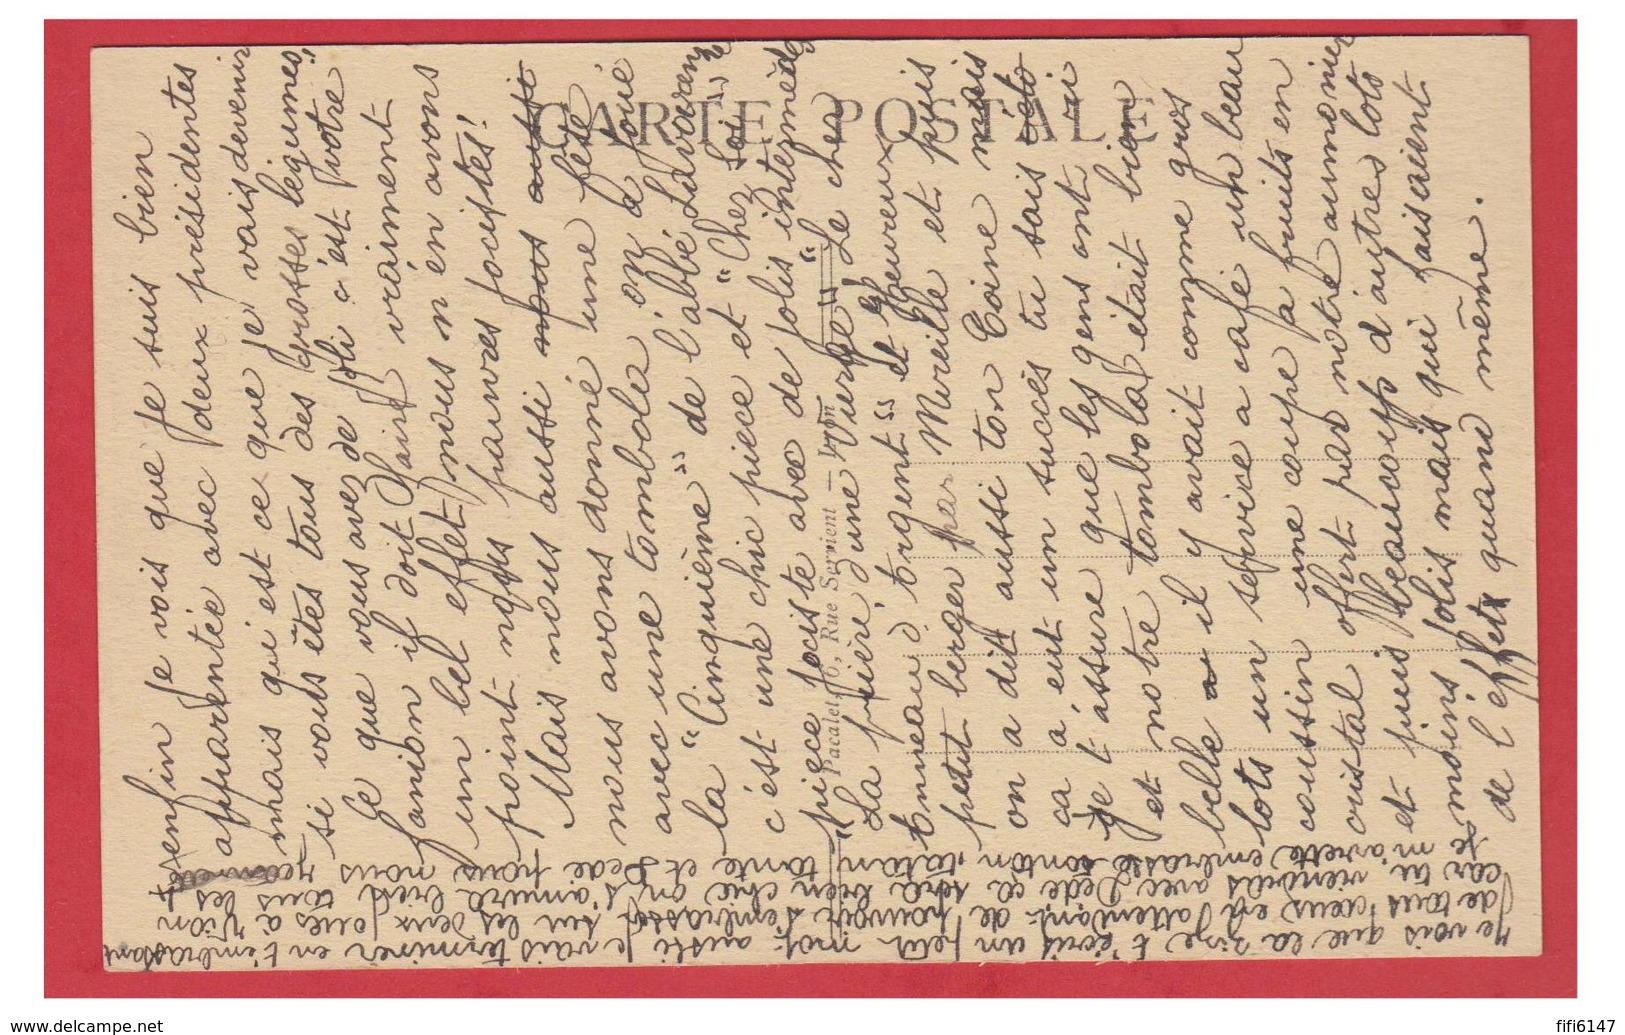 enfin je vois que je suis bien
apparentée avec deux présidentes
mais qui est ce que je vais devenir
si vous êtes tous des grosses légumes!
Je que vous avez de joli c'est votre
fanion il doit faire vraiment
un bel effet, nous n'en avons
point nous pauvres jocistes!
Mais nous aussi nous aussi
nous avons donné une fête
avec une tombola on a joué
la "Cinquième" de l'abbé
c'est une chic pièce et "Chez soi"
pièce jociste avec de jolis intermèdes
"La prière d'une Vierge" "Le cher
anneau d'argent" et "heureux
petit berger par Mireille et puis
on a dit aussi ton Toine mais
ca a eut un succès tu sais
je t'assure que les gens ont ri
et notre tombola était bien
belle a il y avait comme gros
lots un service a café un beau
coussin une coupe a fruits en
cristal offert par notre aumonier
et puis beaucoup d'autres lots
moins jolis mais qui faisaient
de l'effet quand même.
Je vois que la Zize t'écrit un petit mot aussi je vais terminer en t'embrassant
de tout coeur en attendant de pouvoir t'embrasser sur les deux joues a Vion
car tu viendras avec Dédé ca sera bien chic on s'amura bien tous les
Je m'arrette embrasse tonton, tatan, tante et Dédé pour nous
CARTE POSTALE
Pacalet, 6, Rue Servient — Lyon
www.delcampe.net
fifi6147